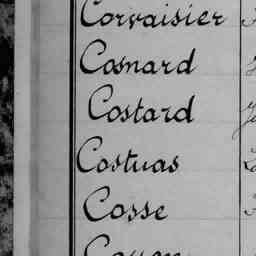 Corvaisier
Cosnard
Costard
Costuas
Cosse